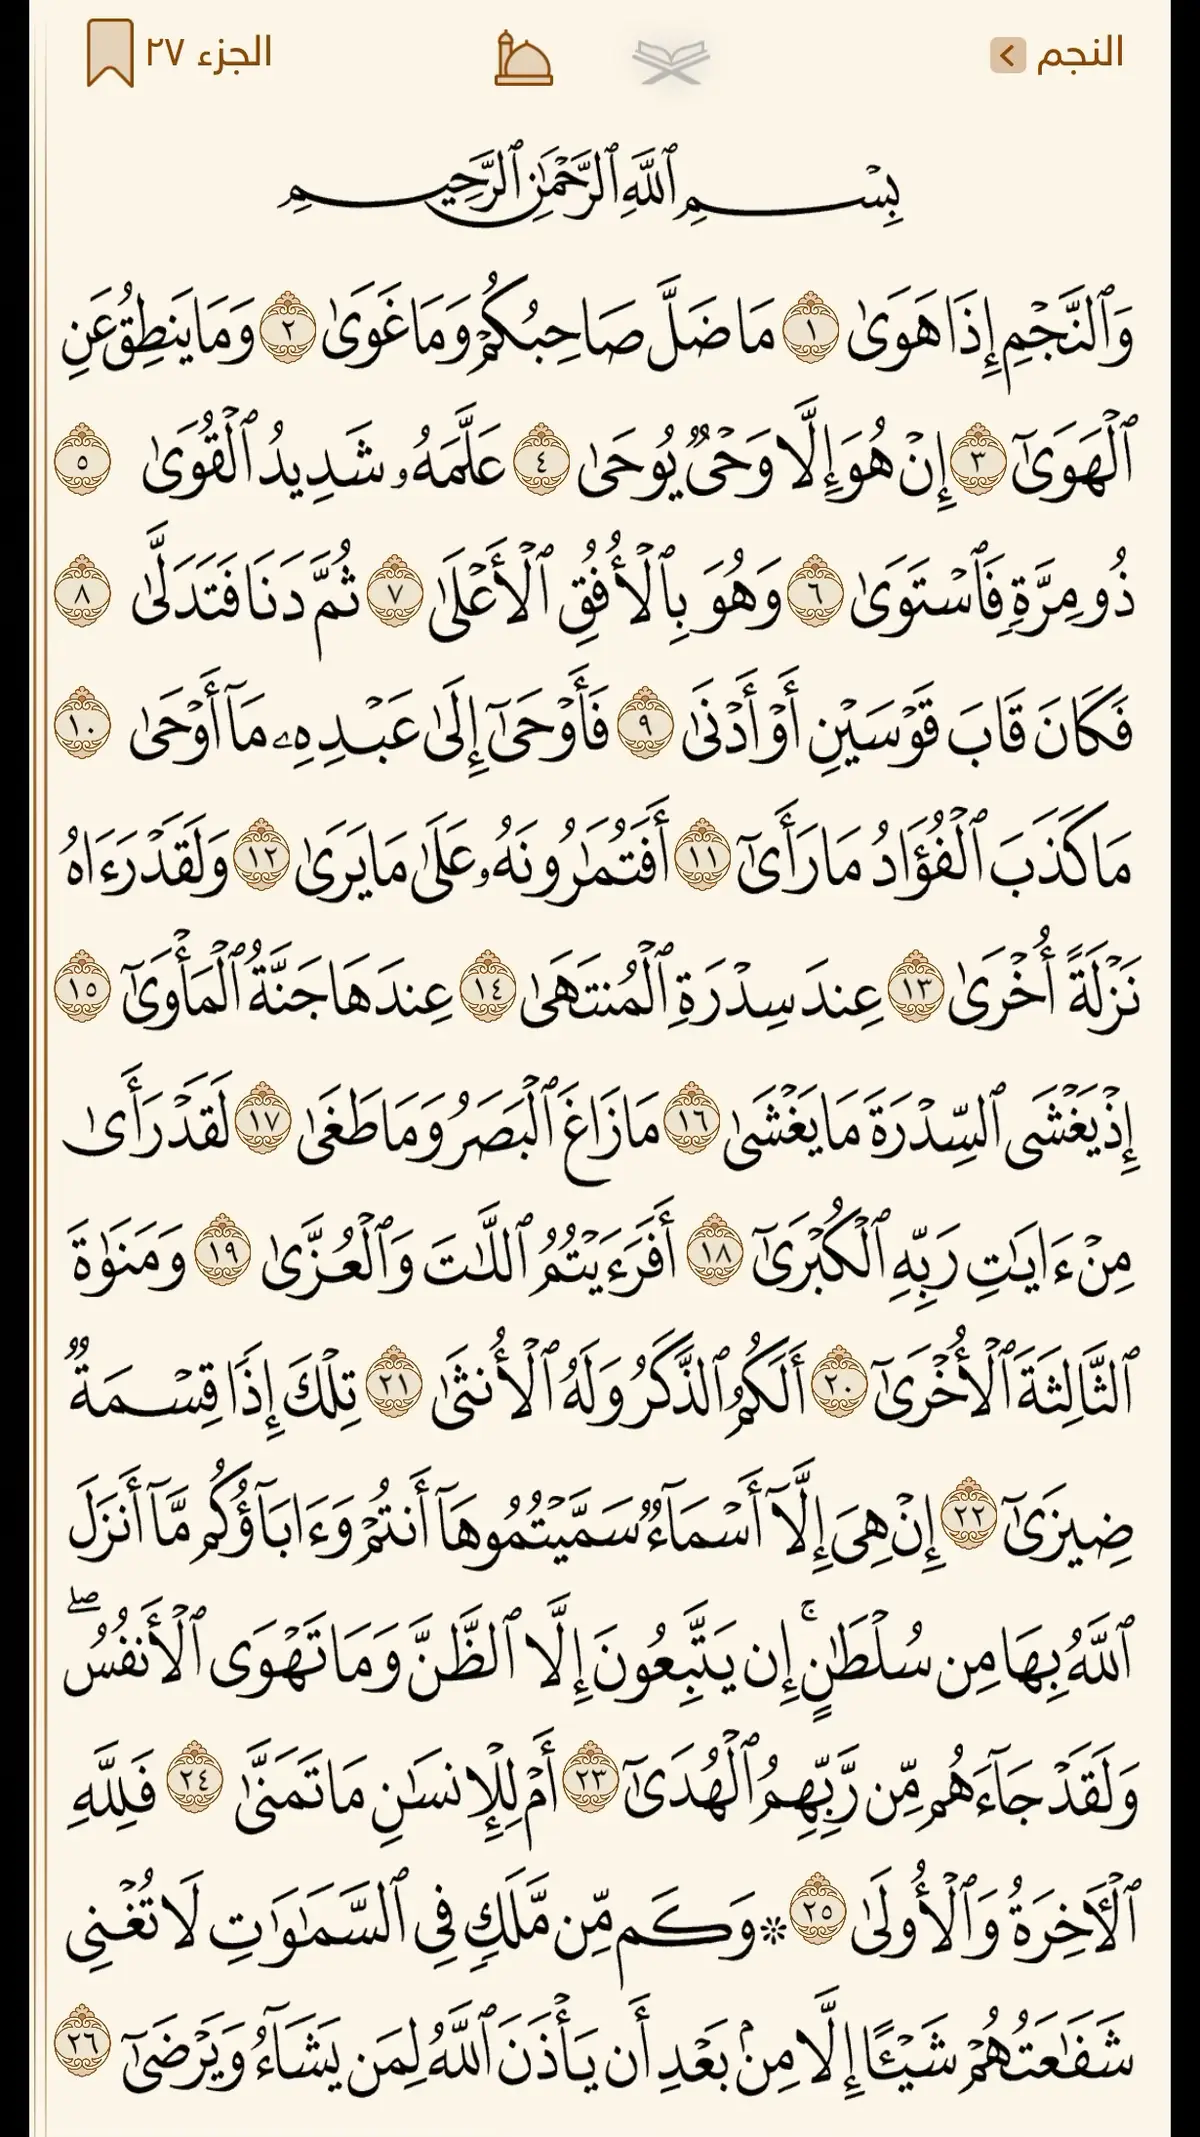 النجم
الجزء ٢٧
بِسْمِ ٱللَّهِ ٱلرَّحْمَٰنِ ٱلرَّحِيمِ
وَٱلنَّجْمِ إِذَا هَوَىٰ ١ مَا ضَلَّ صَاحِبُكُمْ وَمَا غَوَىٰ ٢ وَمَا يَنطِقُ عَنِ
ٱلْهَوَىٰٓ ٣ إِنْ هُوَ إِلَّا وَحْىٌ يُوحَىٰ ٤ عَلَّمَهُۥ شَدِيدُ ٱلْقُوَىٰ ٥
ذُو مِرَّةٍ فَٱسْتَوَىٰ ٦ وَهُوَ بِٱلْأُفُقِ ٱلْأَعْلَىٰ ٧ ثُمَّ دَنَا فَتَدَلَّىٰ ٨
فَكَانَ قَابَ قَوْسَيْنِ أَوْ أَدْنَىٰ ٩ فَأَوْحَىٰٓ إِلَىٰ عَبْدِهِۦ مَآ أَوْحَىٰ ١٠
مَا كَذَبَ ٱلْفُؤَادُ مَا رَأَىٰٓ ١١ أَفَتُمَٰرُونَهُۥ عَلَىٰ مَا يَرَىٰ ١٢ وَلَقَدْ رَءَاهُ
نَزْلَةً أُخْرَىٰ ١٣ عِندَ سِدْرَةِ ٱلْمُنتَهَىٰ ١٤ عِندَهَا جَنَّةُ ٱلْمَأْوَىٰٓ ١٥
إِذْ يَغْشَى ٱلسِّدْرَةَ مَا يَغْشَىٰ ١٦ مَا زَاغَ ٱلْبَصَرُ وَمَا طَغَىٰ ١٧ لَقَدْ رَأَىٰ
مِنْ ءَايَٰتِ رَبِّهِ ٱلْكُبْرَىٰٓ ١٨ أَفَرَءَيْتُمُ ٱللَّٰتَ وَٱلْعُزَّىٰ ١٩ وَمَنَوٰةَ
ٱلثَّالِثَةَ ٱلْأُخْرَىٰٓ ٢٠ أَلَكُمُ ٱلذَّكَرُ وَلَهُ ٱلْأُنثَىٰ ٢١ تِلْكَ إِذًا قِسْمَةٌ
ضِيزَىٰٓ ٢٢ إِنْ هِىَ إِلَّآ أَسْمَآءٌ سَمَّيْتُمُوهَآ أَنتُمْ وَءَابَآؤُكُم مَّآ أَنزَلَ
ٱللَّهُ بِهَا مِن سُلْطَٰنٍ ۚ إِن يَتَّبِعُونَ إِلَّا ٱلظَّنَّ وَمَا تَهْوَى ٱلْأَنفُسُ ۖ
وَلَقَدْ جَآءَهُم مِّن رَّبِّهِمُ ٱلْهُدَىٰٓ ٢٣ أَمْ لِلْإِنسَٰنِ مَا تَمَنَّىٰ ٢٤ فَلِلَّهِ
ٱلْـَٔاخِرَةُ وَٱلْأُولَىٰ ٢٥ ۞ وَكَم مِّن مَّلَكٍ فِى ٱلسَّمَٰوَٰتِ لَا تُغْنِى
شَفَٰعَتُهُمْ شَيْـًٔا إِلَّا مِنۢ بَعْدِ أَن يَأْذَنَ ٱللَّهُ لِمَن يَشَآءُ وَيَرْضَىٰٓ ٢٦